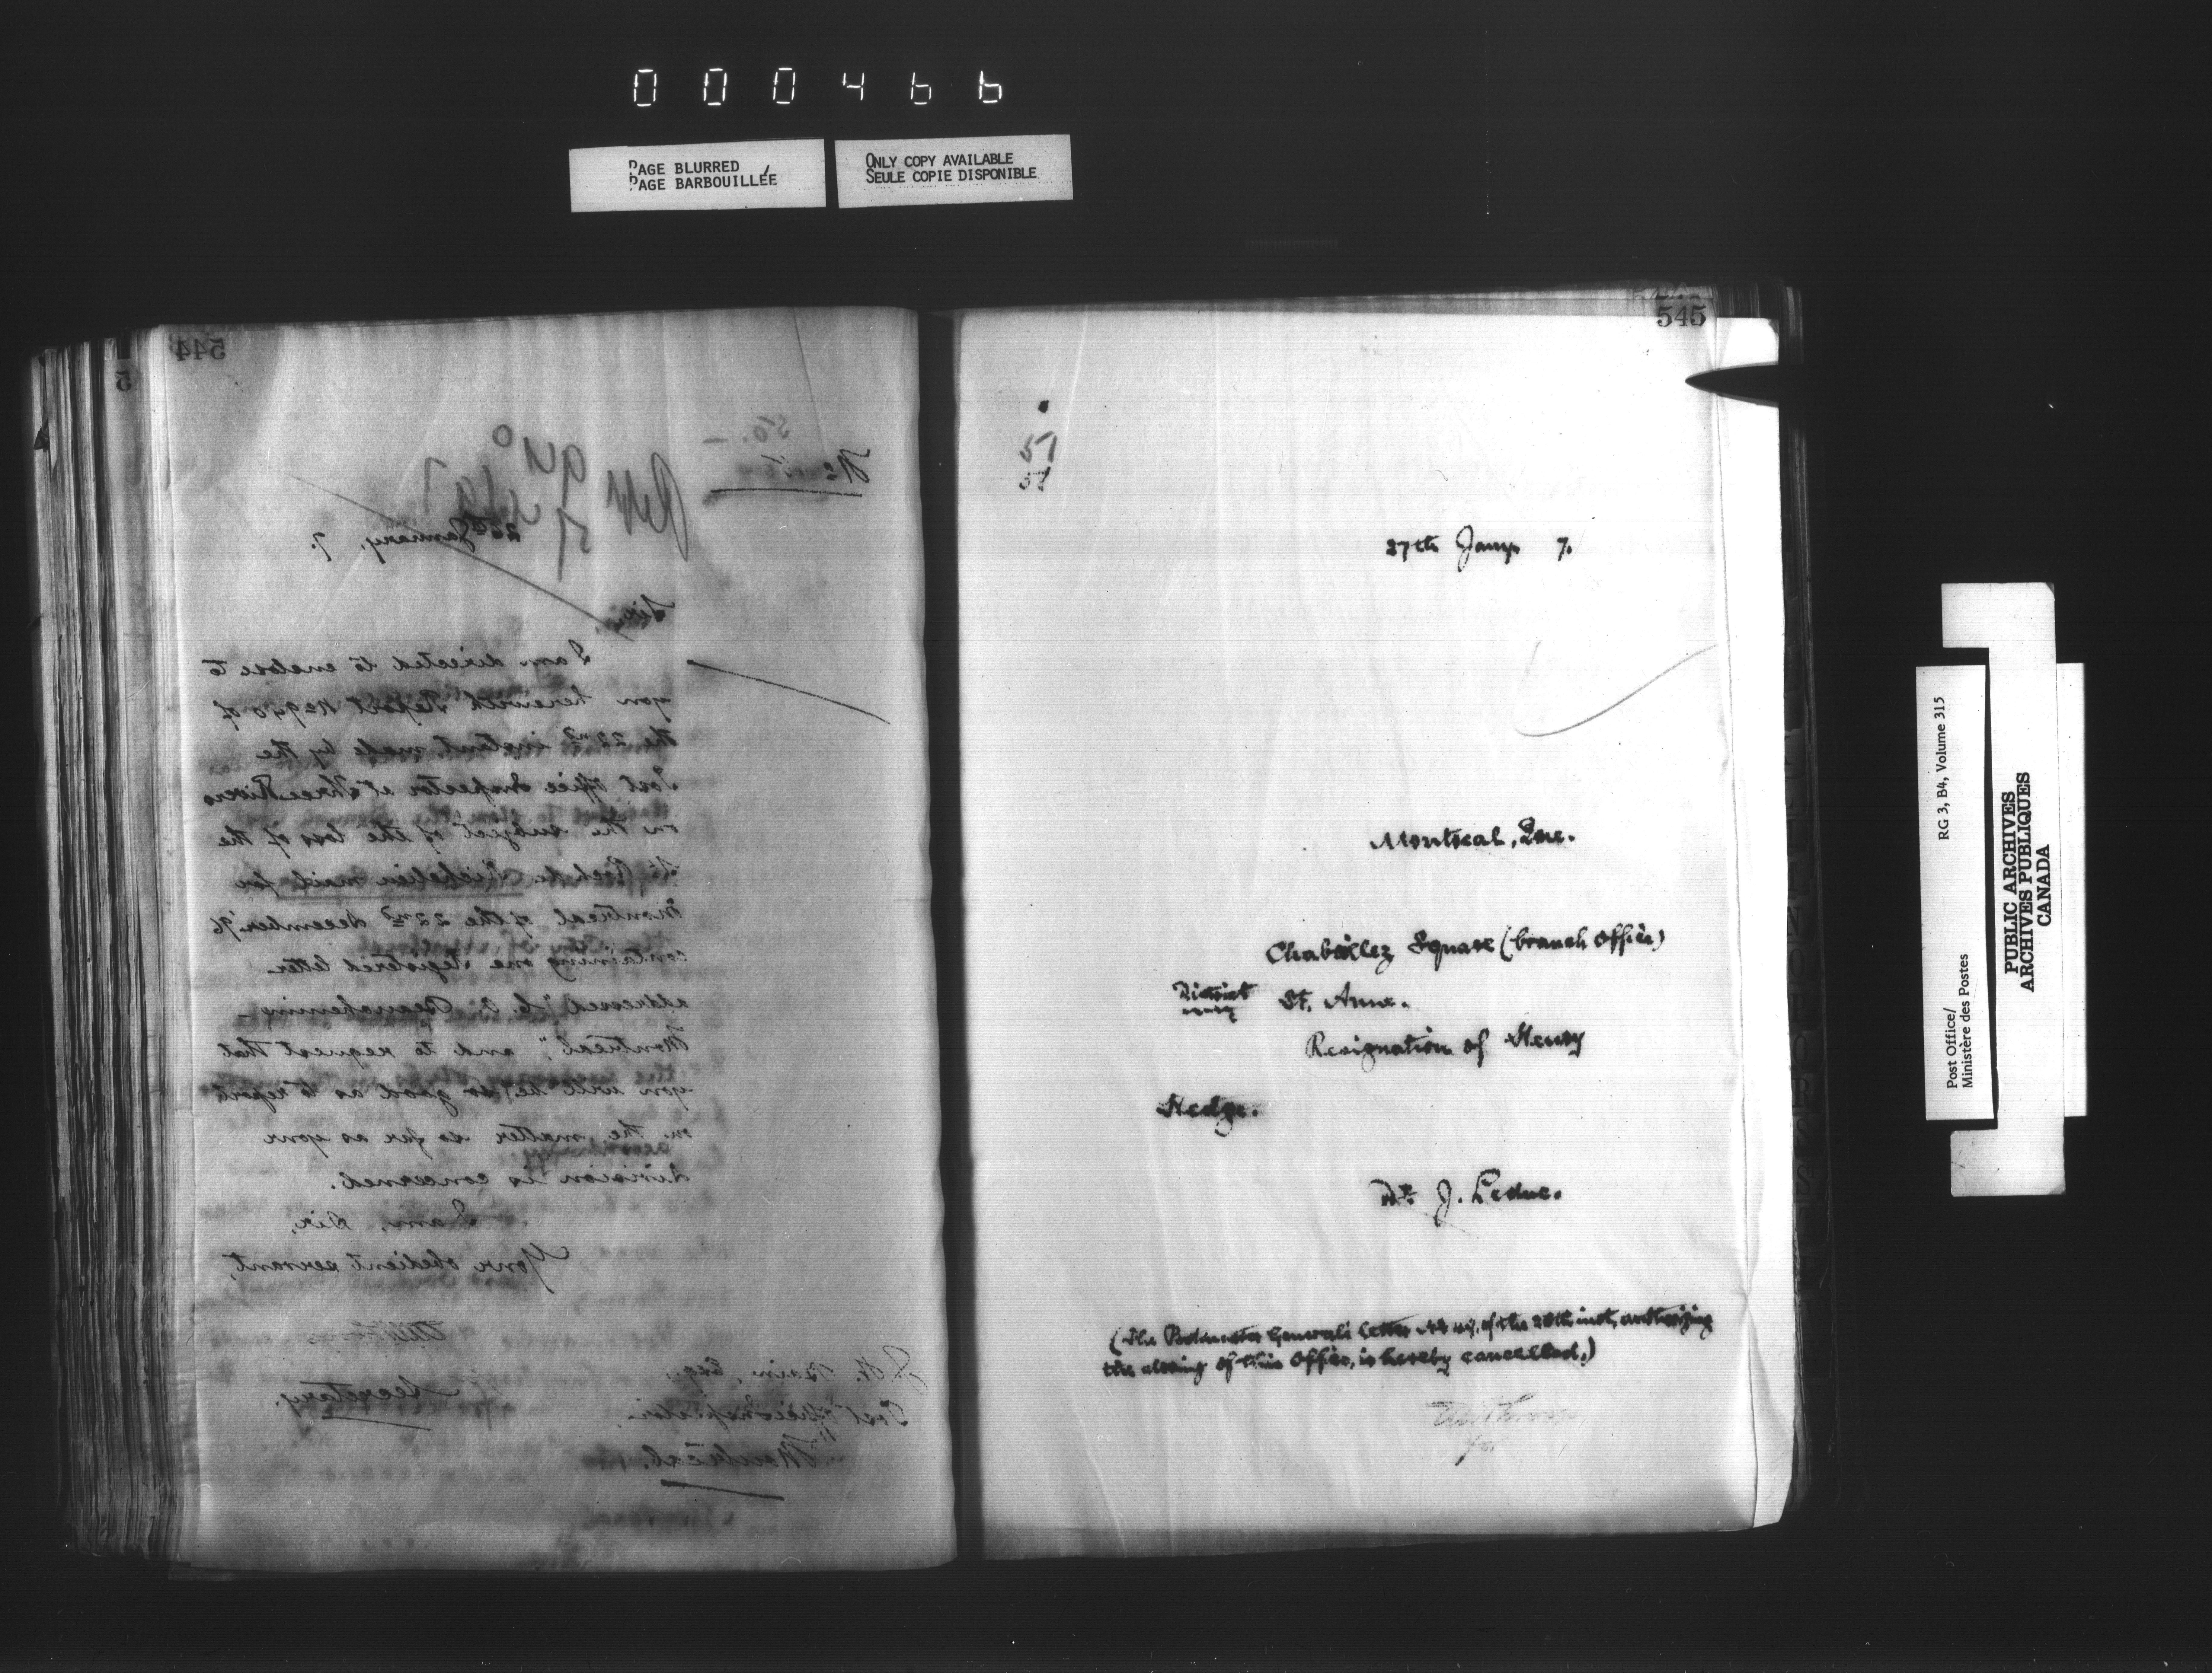 000466
PAGE BLURRED
PAGE BARBOUILLÉE
ONLY COPY AVAILABLE
SEULE COPIE DISPONIBLE
544
5
50.—
No
Rept 940
26th January, 7.
Sir,
I am directed to enclose to
you herewith Report No 940 of
the 22nd instant made by the
Post Office Inspector at Three Rivers
on the subject of the loss of the
St. Roch de Richelieu mail for
Montreal of the 22nd December '96
containing one registered letter
addressed "L. C. Beauchemin
Montreal", and to request that
you will be so good as to report
on the matter so far as your
division is concerned.
I am, Sir,
Your obedient servant,
Secretary.
J. H. Bain, Esq.,
Post Office Inspector.
Montreal.
545
51
27th Jany. 7.
Montreal, Que.
Chaboillez Square (branch Office)
District St. Anne.
Resignation of Henry
Hedge.
J. Leduc.
(The Postmaster General's letter of the 20th inst, authorizing
the closing of this Office, is hereby cancelled.)
for
RG 3, B4, Volume 315
Post Office/
Ministère des Postes
PUBLIC ARCHIVES
ARCHIVES PUBLIQUES
CANADA